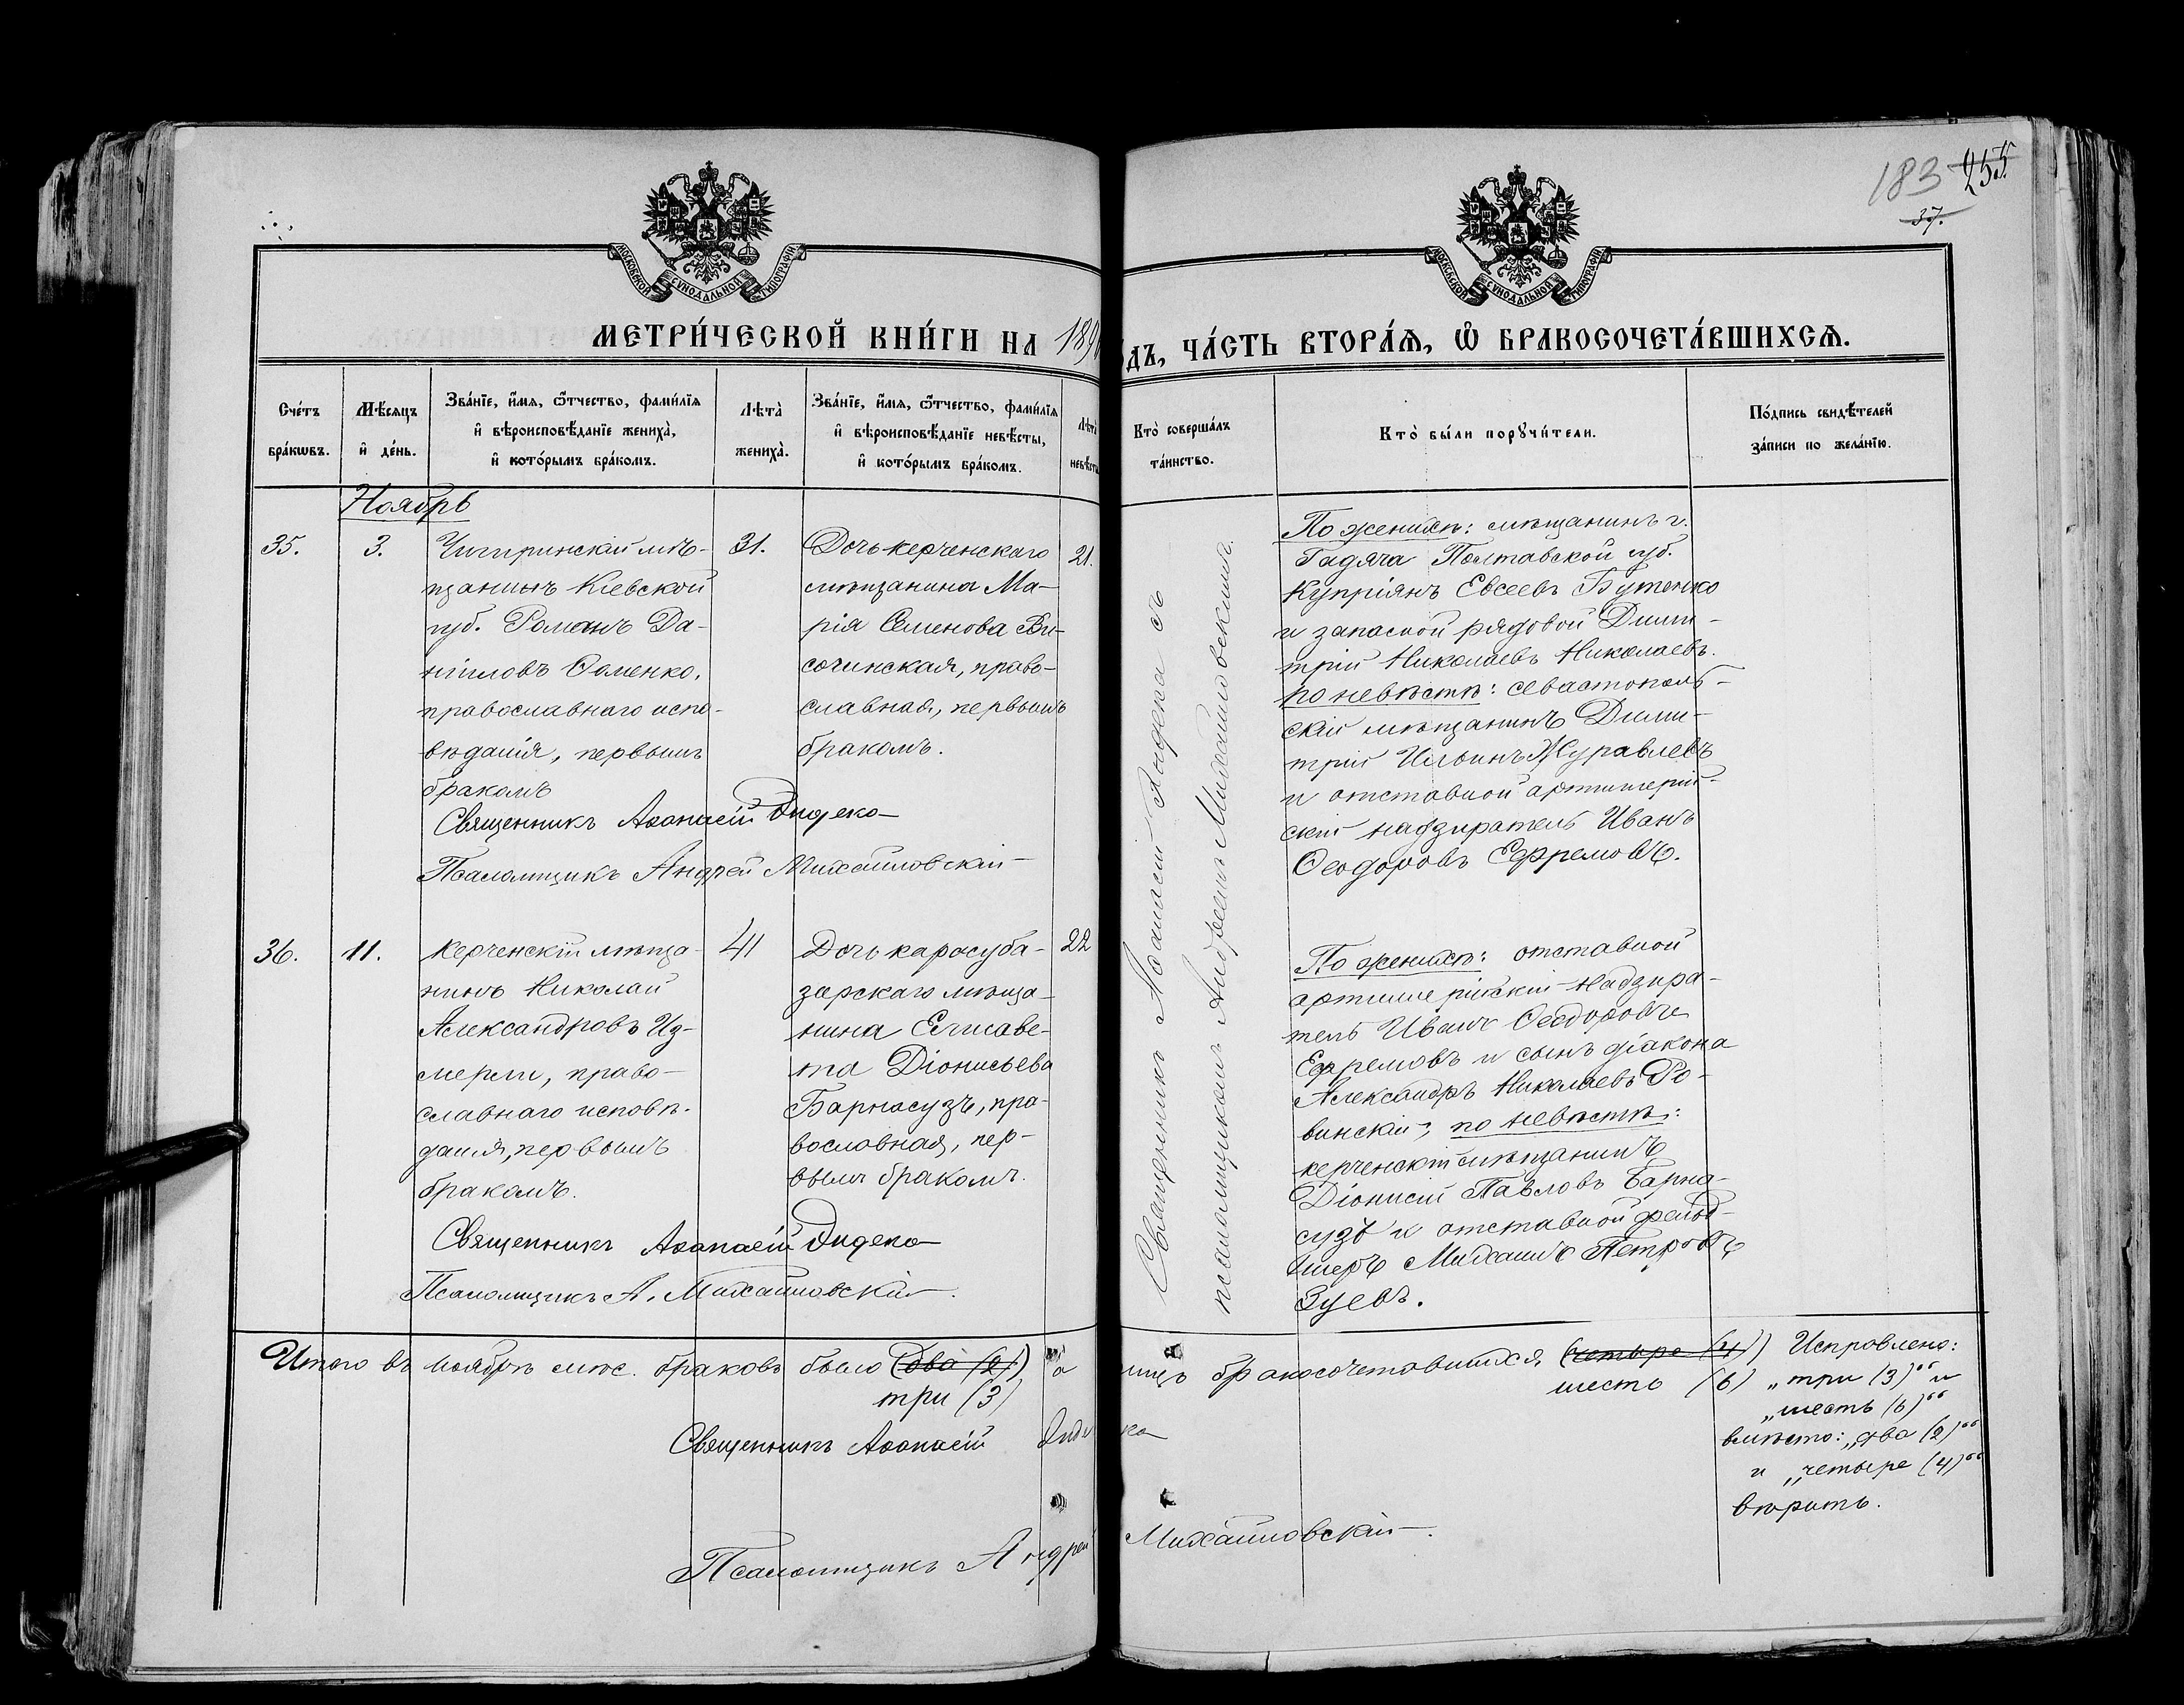 183 255
37.
МОСКОВСКОЙ СѴНОДАЛЬНОЙ ТИПОГРАФІИ
МОСКОВСКОЙ СѴНОДАЛЬНОЙ ТИПОГРАФІИ
МЕТРИ́ЧЕСКОЙ КНИ́ГИ НА 189
дъ, ЧА́СТЬ ВТОРА́Я, Ѽ БРАКОСОЧЕТА́ВШИХСЯ.
Сче́тъ бра́кѡвъ.
Мѣ́сяцъ и҆ де́нь.
Зва́нїе, и҆́мя, ѻ҆́тчество, фами́лїя
и҆ вѣроисповѣ́данїе жениха̀,
и҆ кото́рымъ бра́комъ.
Лѣта̀ жениха̀.
Зва́нїе, и҆́мя, ѻ҆́тчество, фами́лїя
и҆ вѣроисповѣ́данїе невѣ́сты,
и҆ кото́рымъ бра́комъ.
Лѣта̀ невѣсты
Кто̀ соверша́лъ
та́инство.
Кто̀ бы́ли порꙋчи́тели.
По́дпись свидѣ́телей
за́писи по жела́нїю.
Ноябрь
35.
3.
Чигиринскій мѣ-
щанинъ Кіевской
губ. Романъ Да-
ніиловъ Ѳоменко,
православнаго испо-
вѣданія, первымъ
бракомъ
31.
Дочь керченскаго
мѣщанина Ма-
рія Семенова Ви-
сочинская, право-
славная, первымъ
бракомъ.
21.
Священникъ Аѳанасій Дидеко
Псаломщикъ Андрей Михайловскій
Священникъ Аѳанасій Дидеко съ
псаломщикомъ Андреемъ Михайловскимъ.
По женихѣ: мѣщанинъ г.
Гадяча Полтавской губ.
Купріянъ Евсеевъ Бутенко
и запасной рядовой Дими-
трій Николаевъ Николаевъ.
по невѣстѣ: севастополь-
скій мѣщанинъ Дими-
трій Ильинъ Журавлевъ
и отставной артиллерій-
скій надзиратель Иванъ
Ѳеодоровъ Ефремовъ.
36.
11.
Керченскій мѣща-
нинъ Николай
Александровъ Из-
мерли, право-
славнаго исповѣ-
данія, первымъ
бракомъ.
41
Дочь карасуба-
зарскаго мѣща-
нина Елисаве-
та Діонисьева
Барнасузъ, пра-
вославная, пер-
вымъ бракомъ.
22
Священникъ Аѳанасій Дидеко
Псаломщикъ А. Михайловскій.
По женихѣ: отставной
артиллерійскій надзира-
тель Иванъ Ѳеодоровъ
Ефремовъ и сынъ діакона
Александръ Николаевъ Ро-
винскій; по невѣстѣ:
керченскій мѣщанинъ
Діонисій Павловъ Барна-
сузъ и отставной фельд-
шеръ Михаилъ Петровъ
Зуевъ.
Итого въ ноябрѣ мѣс. браковъ было (два (2)) а
три (3)
лицъ бракосочетавшихся (четыре (4))
шесть (6)
Исправлено:
„три (3)“ и
„шесть (6)“
вмѣсто: „два (2)“
и „четыре (4)“
вѣрить.
Священникъ Аѳанасій Дидеко
Псаломщикъ Андрей Михайловскій.